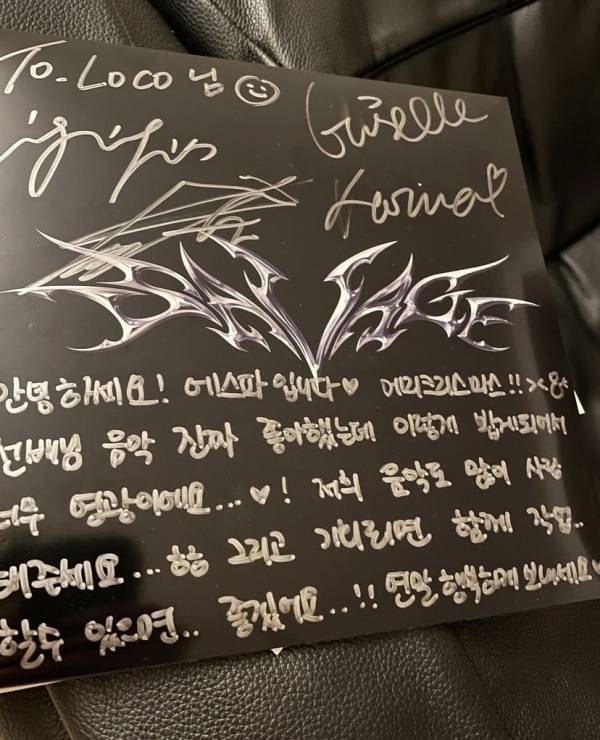 To. Loco 님 ☺
Giselle
Karina♡
SAVAGE
안녕하세요! 에스파입니다♥ 메리크리스마스!! ><8<
선배님 음악 진짜 좋아했는데 이렇게 뵙게되어서
너무 영광이에요...♥! 저희 음악도 많이 사랑
해주세요...ㅎㅎ 그리고 기회되면 함께 작업..
할수 있으면.. 좋겠어요..!! 연말 행복하게 보내세요♥